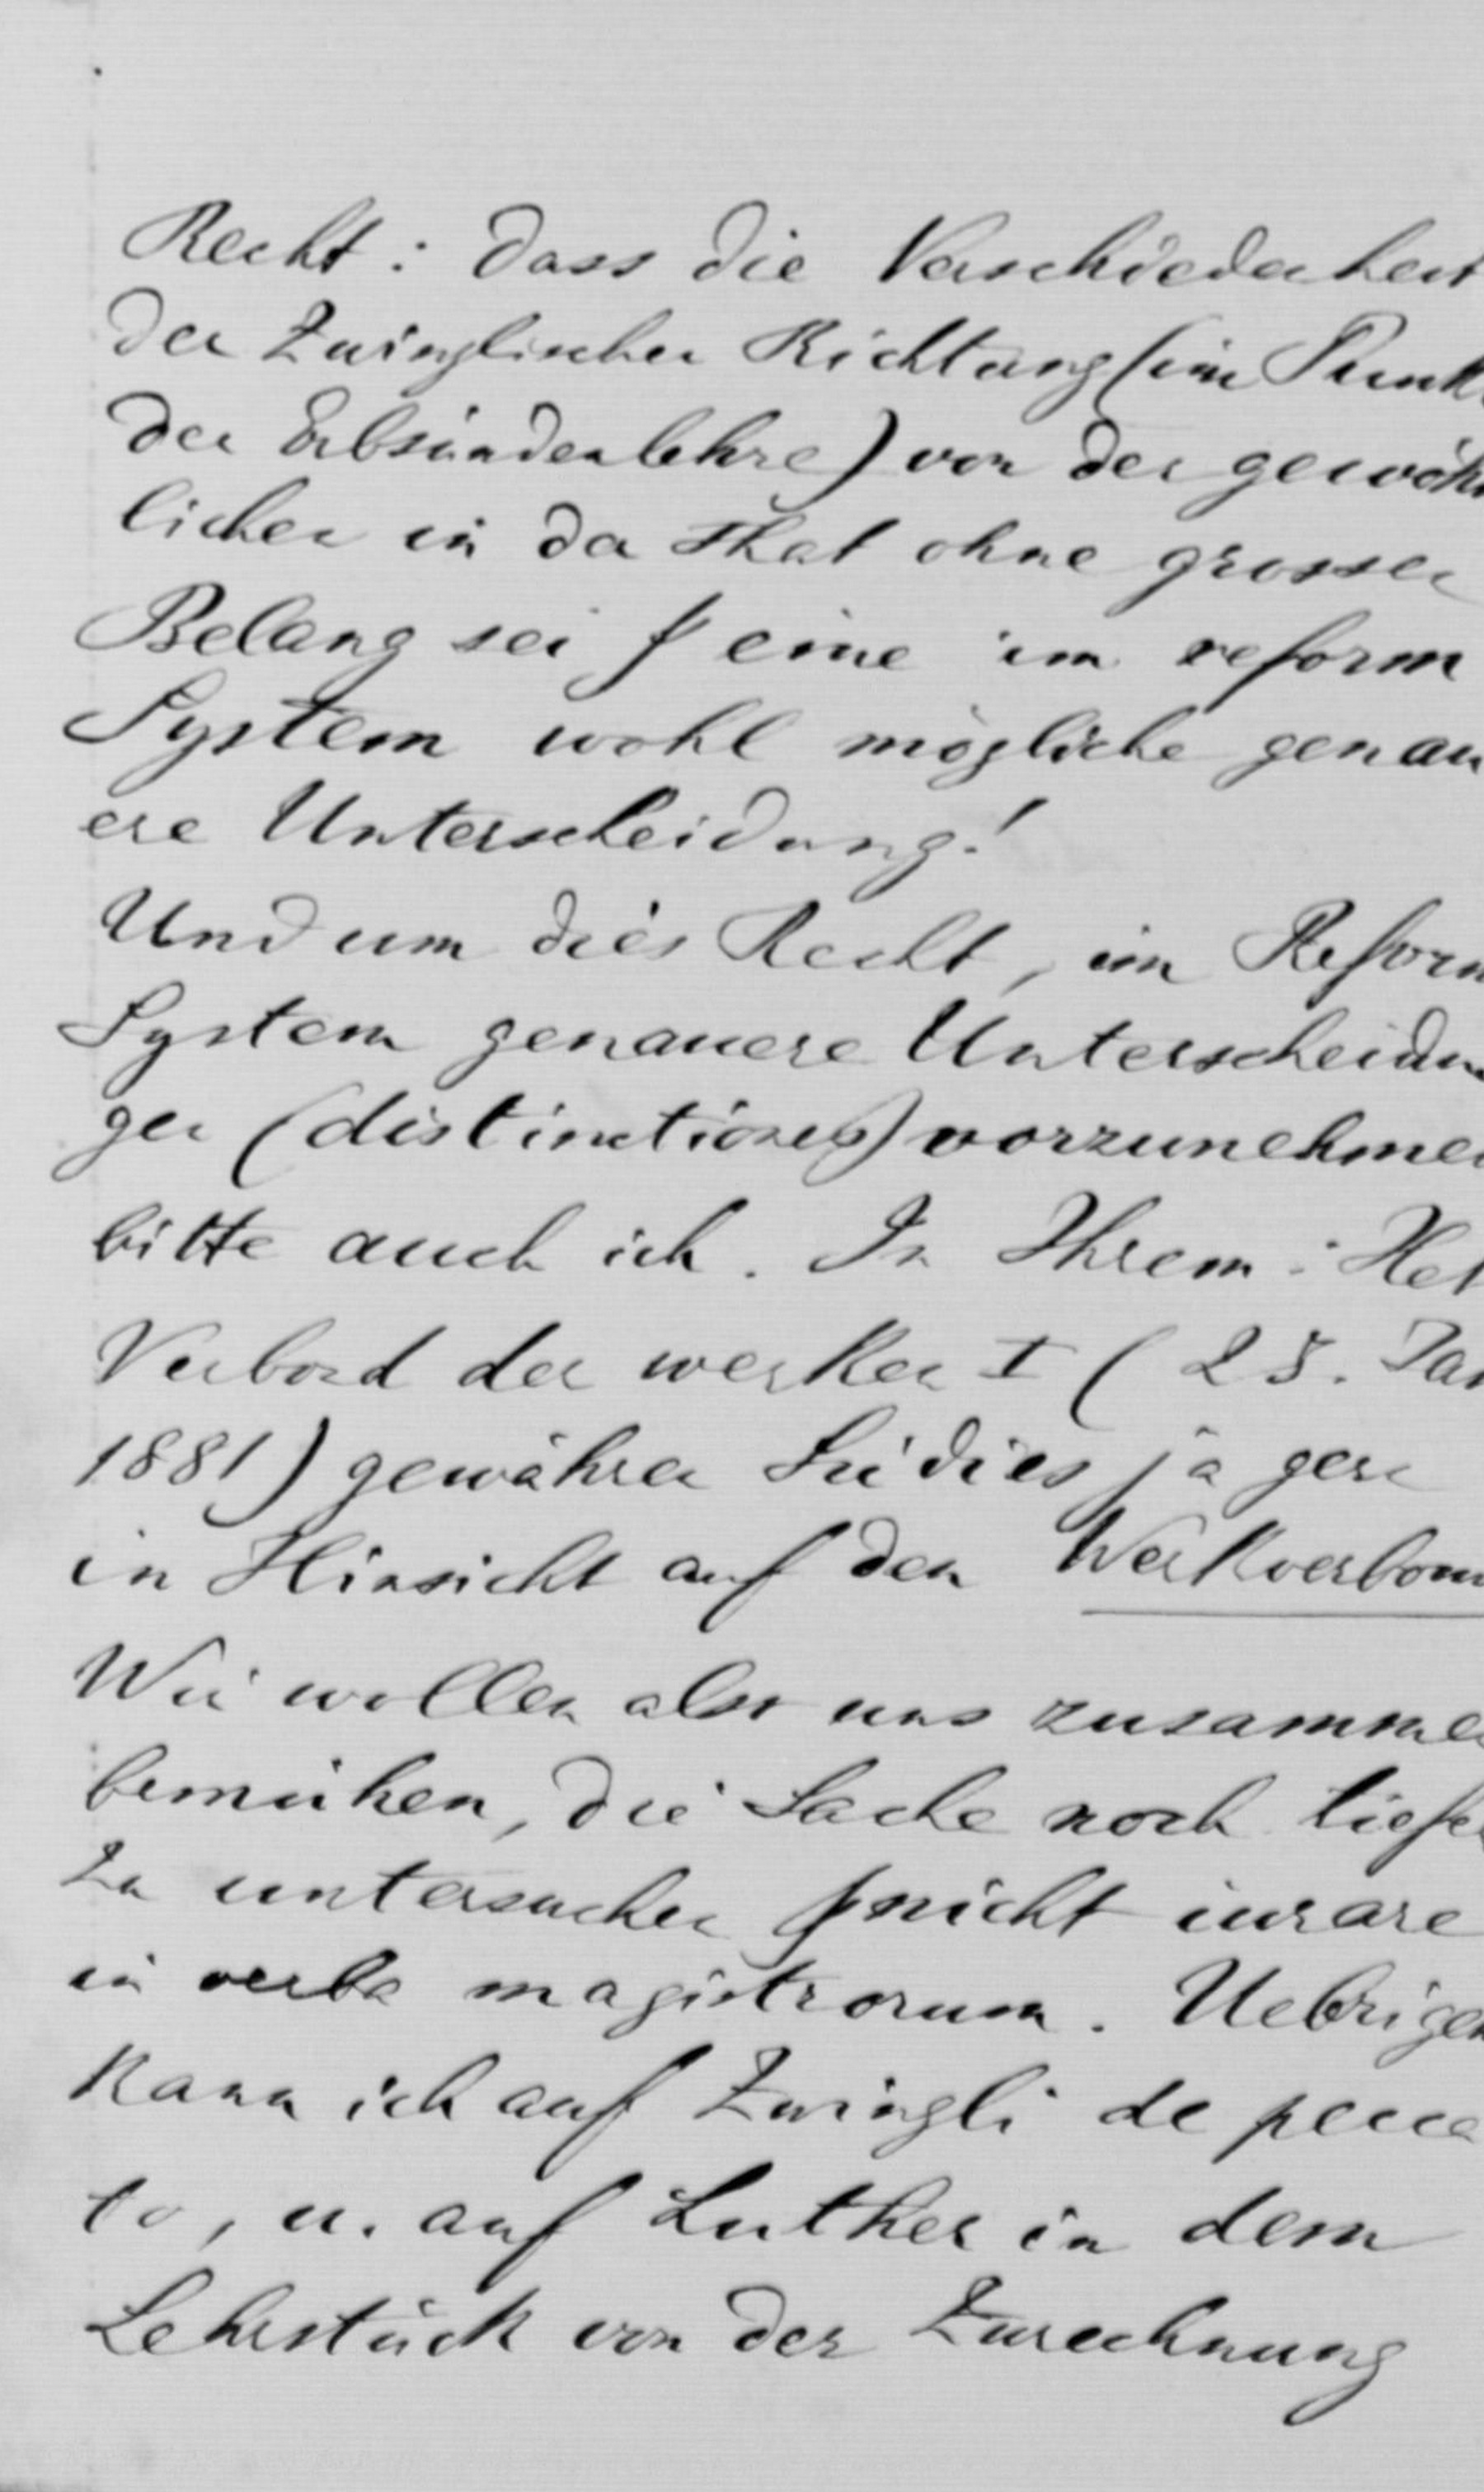 Recht: dass die Verschiedenheit
der Zwinglischen Richtung (im Punkt
der Erbsündenlehre) von der gewöhn
lichen in der That ohne grossen
Belang sei & eine im reform
System wohl mögliche genau
ere Unterscheidung!
Und um dies Recht, im Reform
System genauere Unterscheidun
gen (distinctiones) vorzunehmen
bitte auch ich. In Ihrem: Het
Verbond der werken I (25. Jan
1881) gewähren Sie dies ja gern
in Hinsicht auf den Werkverbon
Wir wollen also uns zusammen
bemühen, die Sache noch tiefer
zu untersuchen & nicht iurare
in verba magistrorum. Uebrigen
kann ich auf Zwingli de pecca
to, u. auf Luther in dem
Lehrstück von der Zurechnung